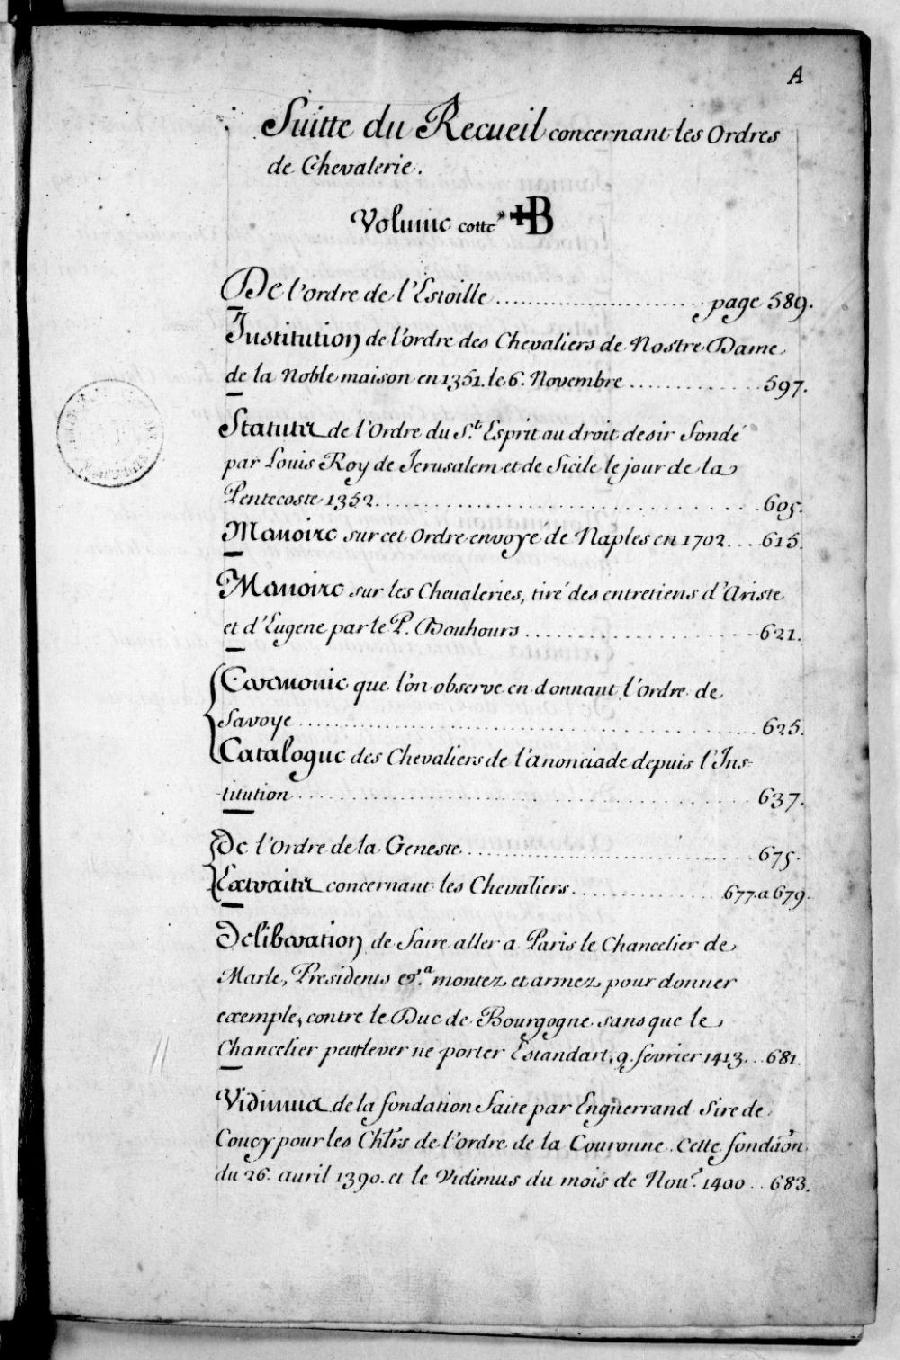 A
Suitte du Recueil concernant les Ordres
de Chevalerie.
Volume cotté +B
De l'ordre de l'Estoille ........................ page 589.
Institution de l'ordre des Chevaliers de Nostre Dame
de la Noble maison en 1351. le 6. Novembre ............ 597.
Statuts de l'Ordre du St. Esprit au droit desir fondé
par Louis Roy de Jerusalem et de Sicile le jour de la
Pentecoste 1352. ........................ 605.
Memoire sur cet Ordre envoyé de Naples en 1702 ... 615.
Memoire sur les Chevaleries, tiré des entretiens d'Ariste
et d'Eugene par le P. Bouhours ................ 621.
Ceremonie que l'on observe en donnant l'ordre de
Savoye ........................ 625.
Catalogue des Chevaliers de l'anonciade depuis l'Ins-
-titution ........................ 637.
De l'Ordre de la Geneste ................ 675.
Extraits concernant les Chevaliers ............ 677. a 679.
Deliberation de faire aller a Paris le Chancelier de
Marle, Presidents &a. montez et armez pour donner
exemple, contre le Duc de Bourgogne sans que le
Chancelier peut lever ne porter Estandart, 9. fevrier 1413 ... 681.
Vidimus de la fondation faite par Enguerrand Sire de
Coucy pour les Chlrs de l'ordre de la Couronne. Cette fondaon
du 26. avril 1390. et le Vidimus du mois de Nou.e 1400 .. 683.